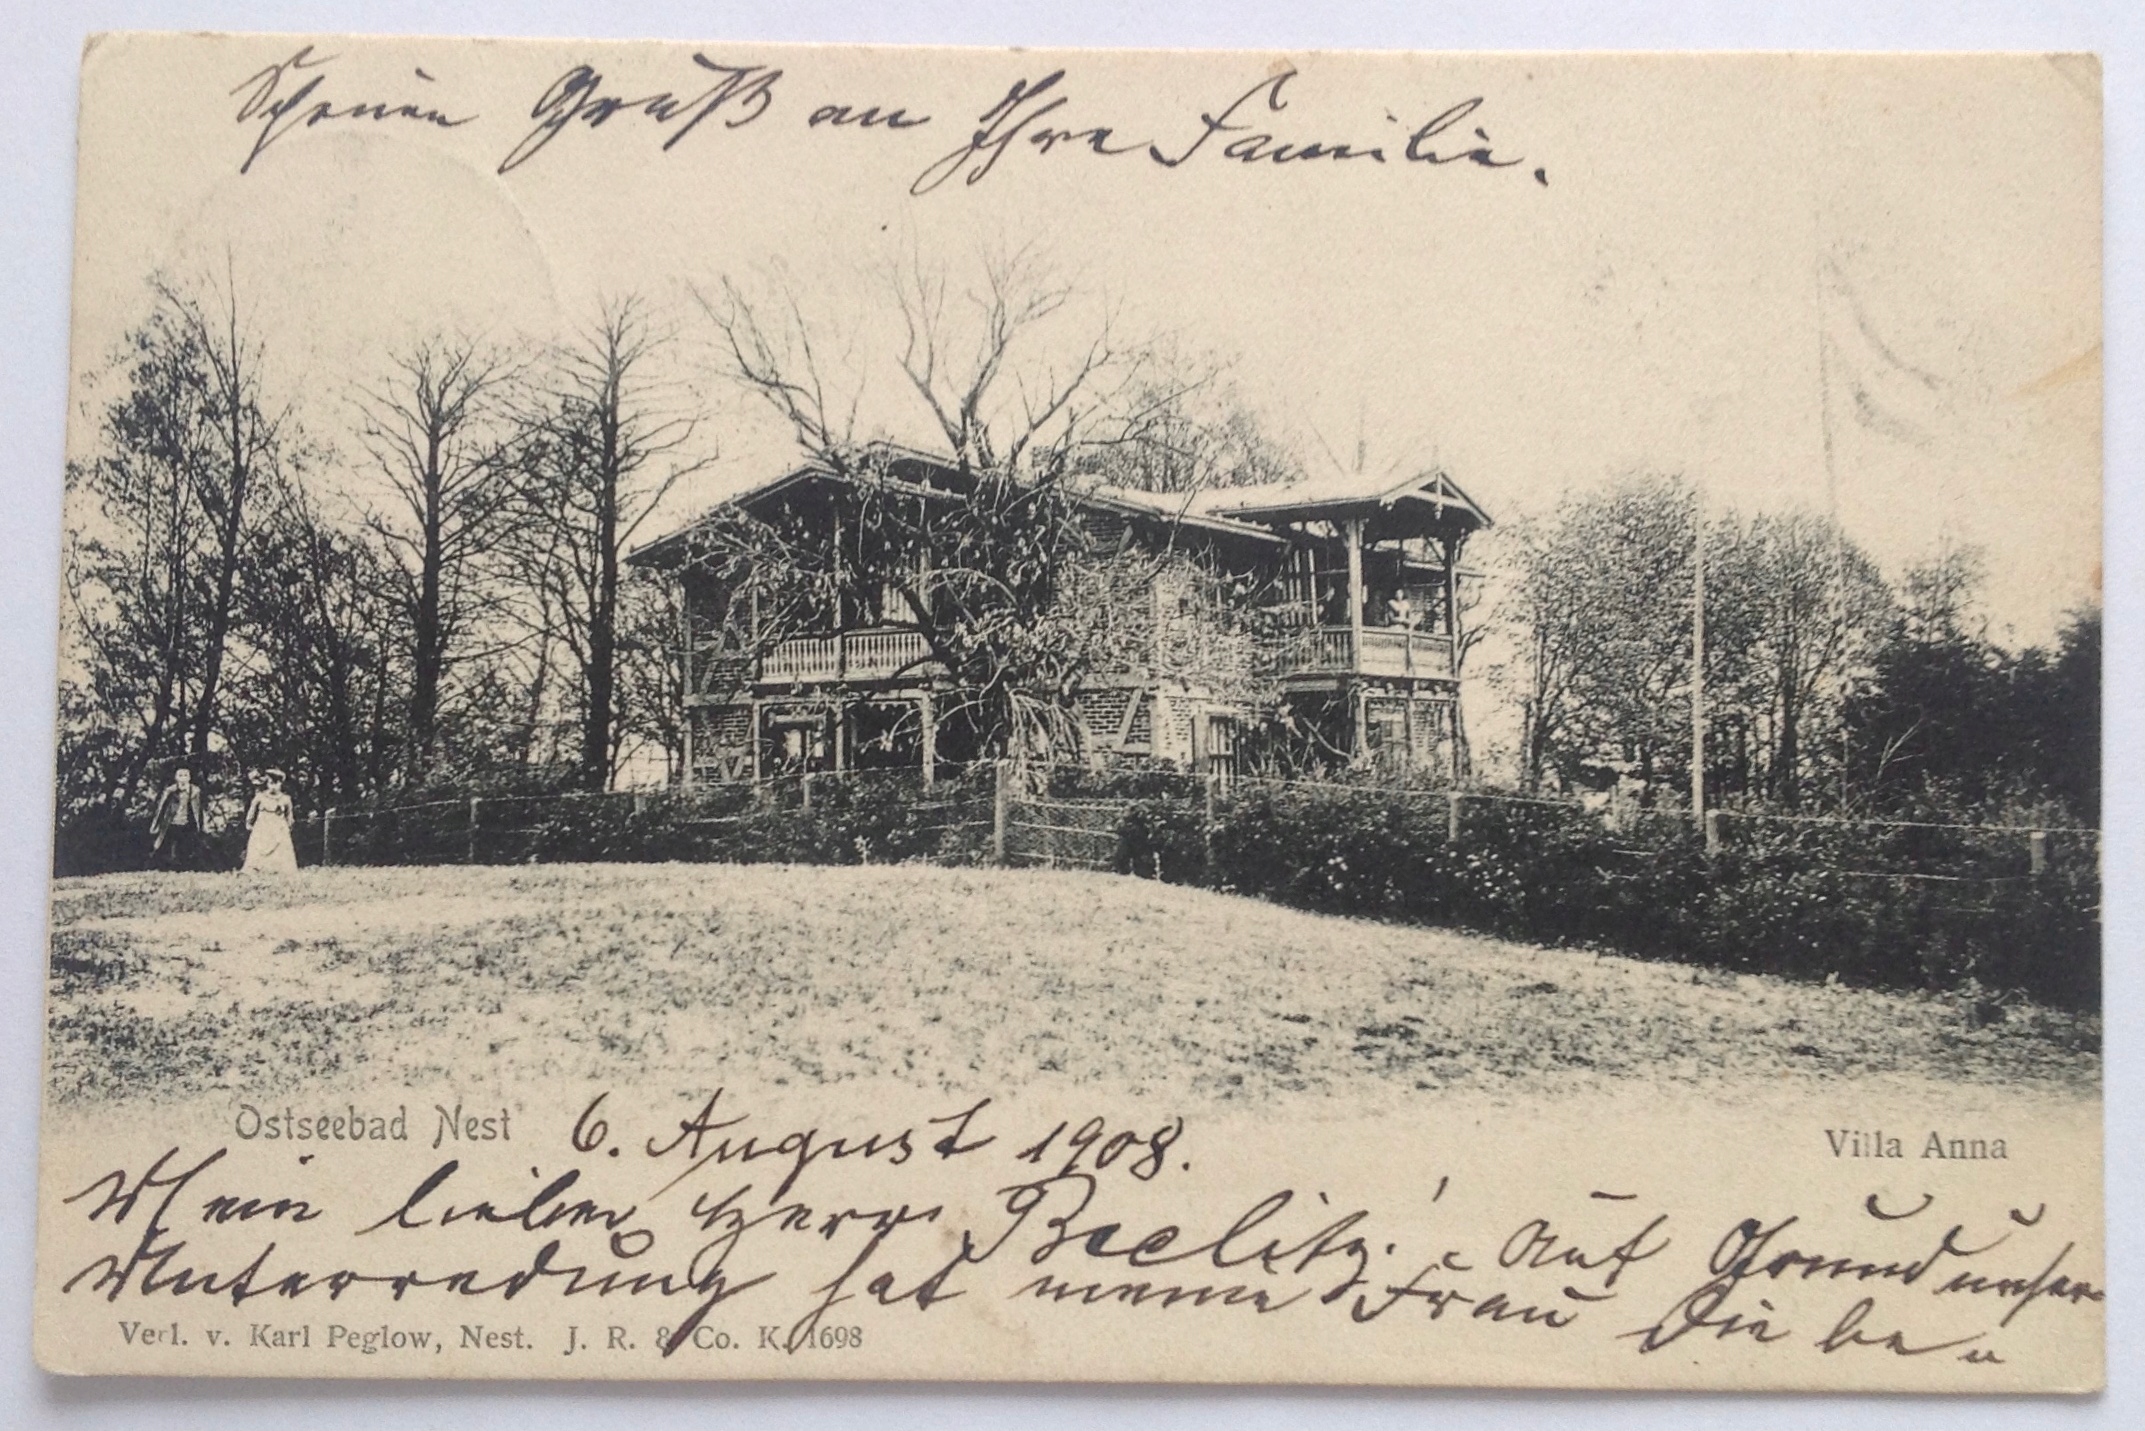 Schönen Gruß an Ihre Familie.
Ostseebad Nest 6. August 1908.
Villa Anna
Mein lieber Herr Beelitz! Auf Grund unser
Unterredung hat meine Frau die be =
Verl. v. Karl Peglow, Nest. J. R. & Co. K. 1698